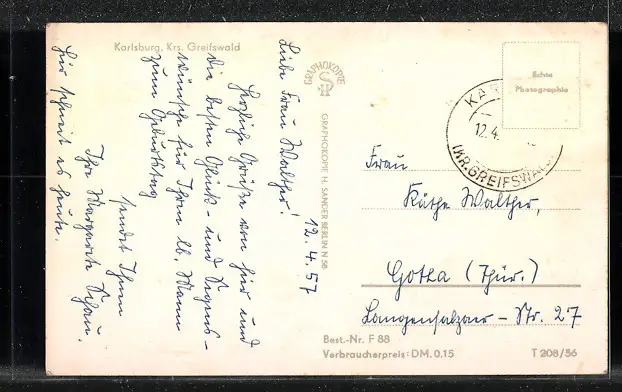 Karlsburg, Krs. Greifswald
12. 4. 57
Liebe Frau Walther!
Herzliche Grüße von hier und
die besten Glück- und Segens-
wünsche für Ihren lb. Mann
zum Geburtstag
sendet Ihnen
Ihre Margarete Schau.
Hier schneit es heute.
GRAPHOKOPIE
GRAPHOKOPIE H. SANDER BERLIN N 58
Echte
Photographie
KA
12.4.
(KR. GREIFSWALD
Frau
Käthe Walther,
Gotha (Thür.)
Langensalzaer-Str. 27
Best.-Nr. F 88
Verbraucherpreis: DM. 0.15
T 208/56